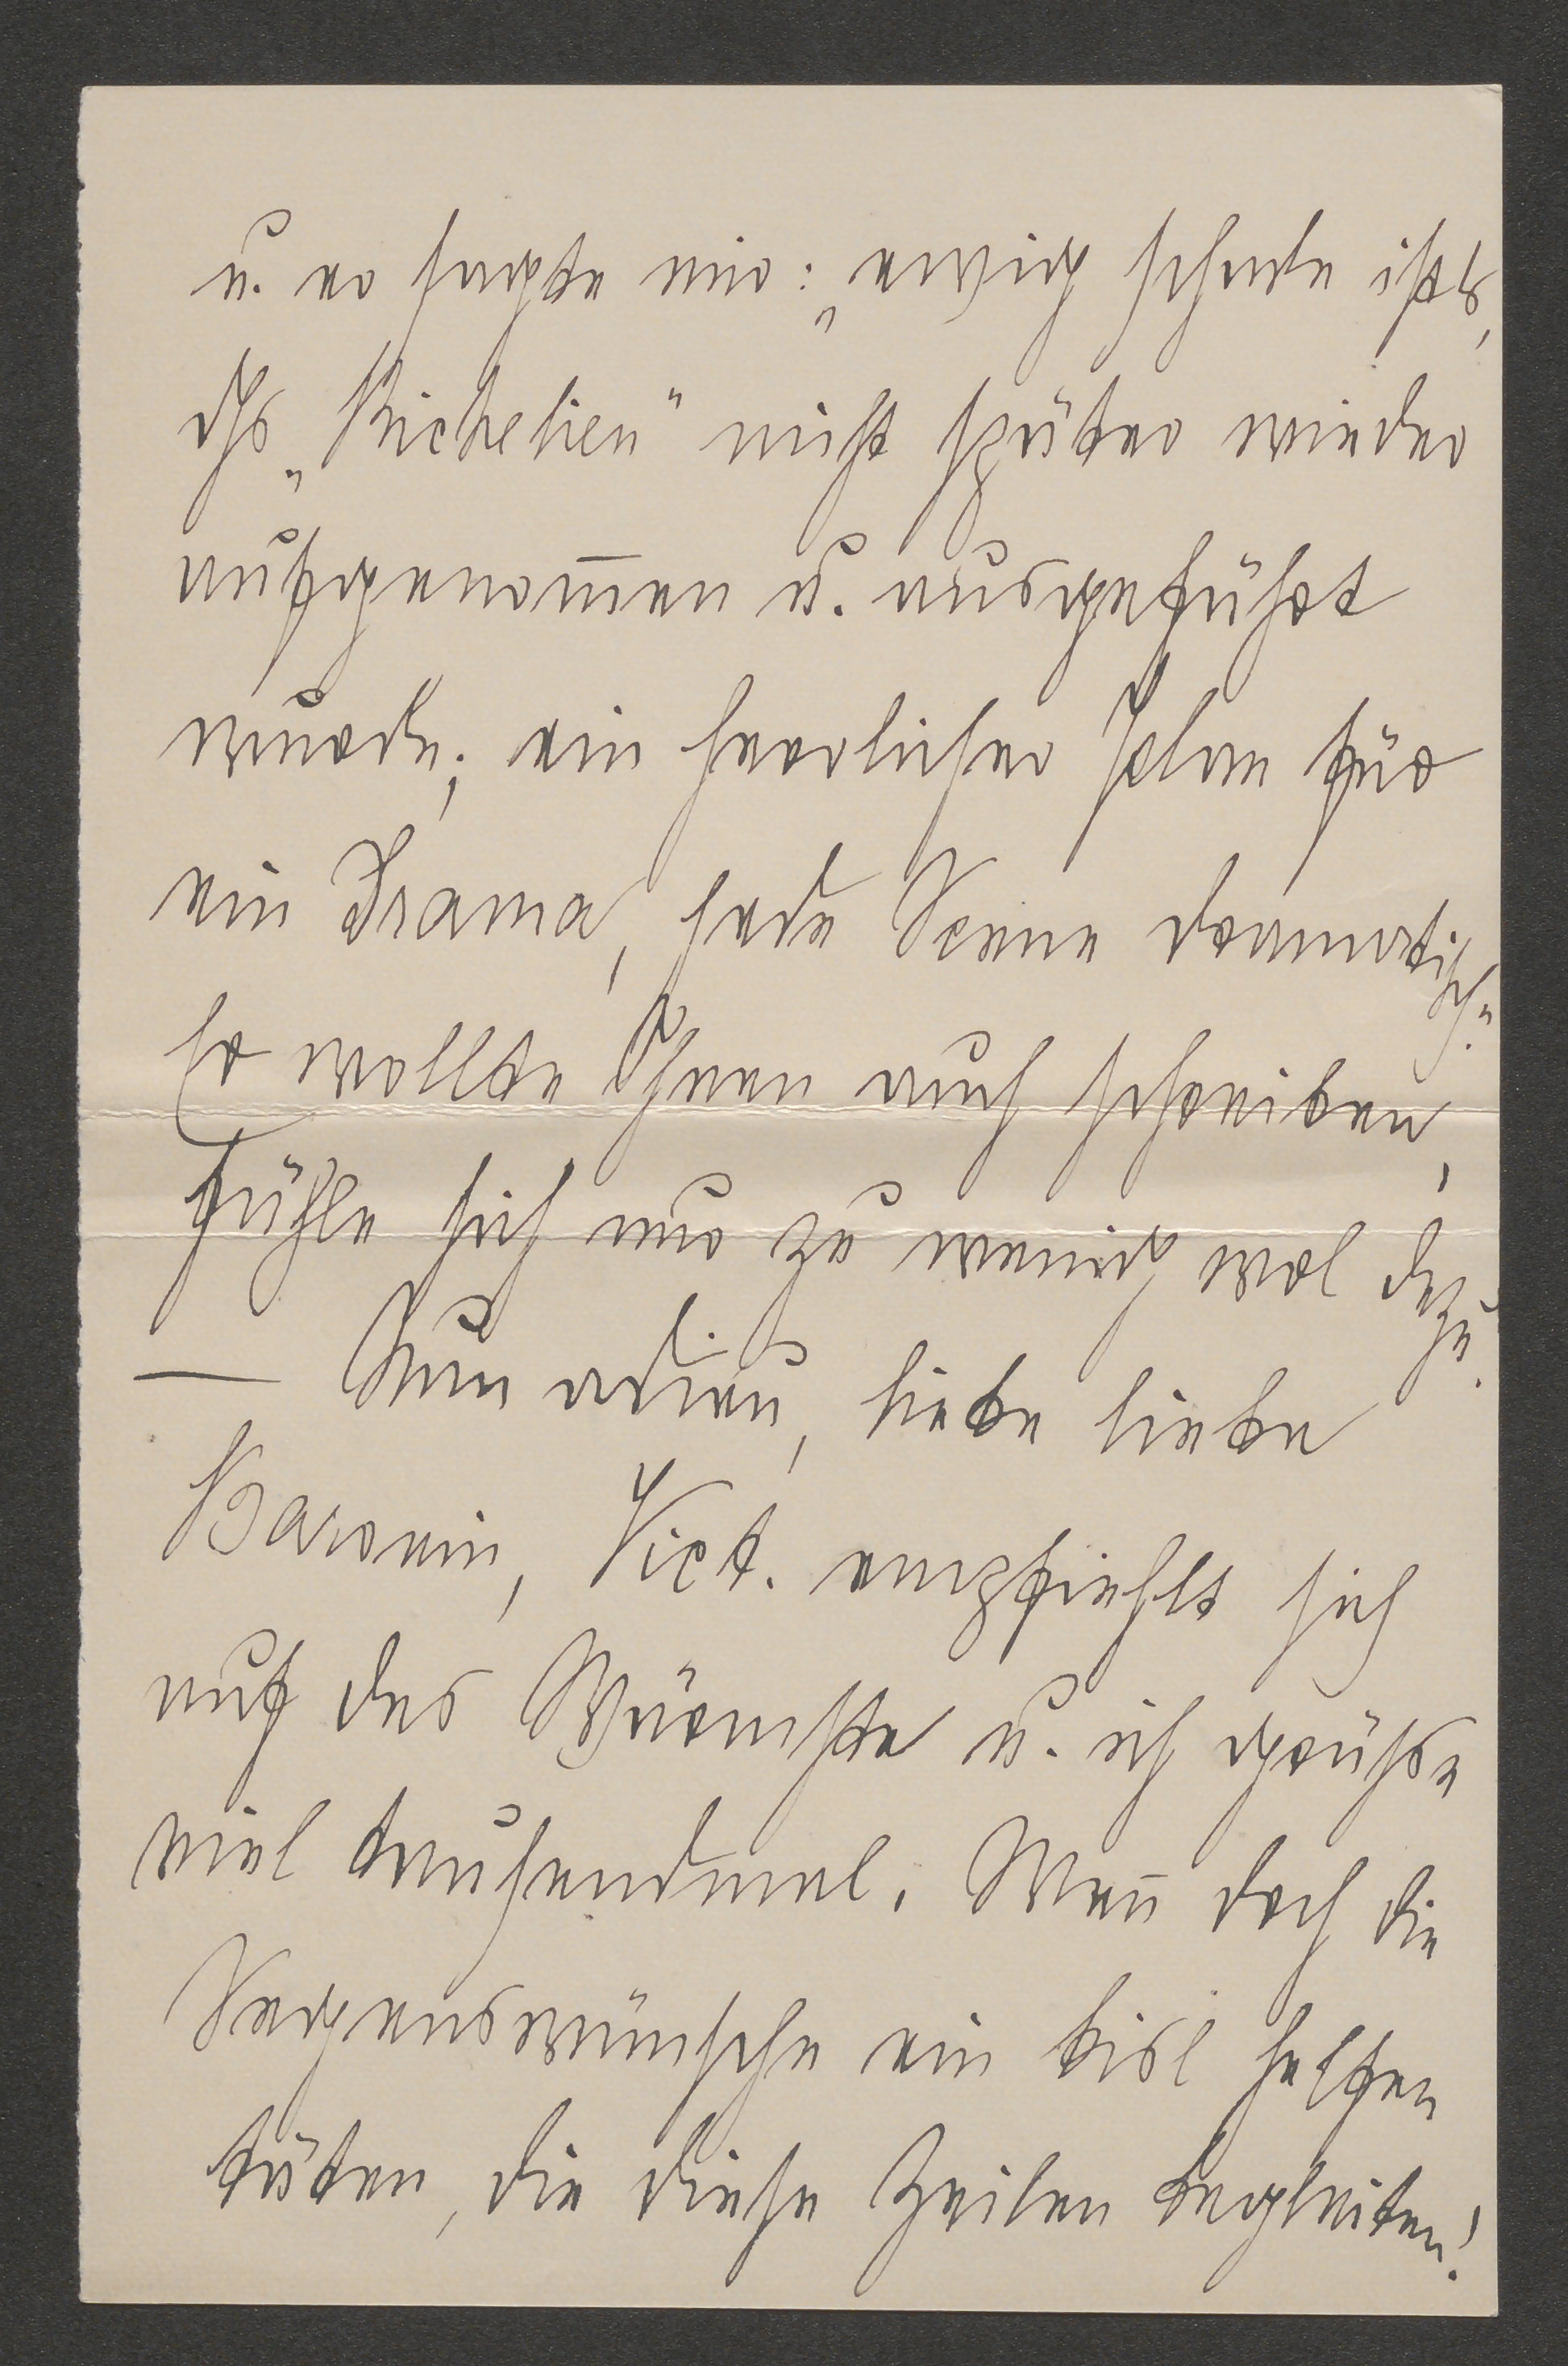 u. er sagte mir: „ewig schade ist's,
dß „Richelieu" nicht später wieder
aufgenom̄en u. ausgeführt
wurde; ein herrlicher Plan für
ein Drama, jede Scene dramatisch".
Er wollte Ihnen auch schreiben,
fühle sich nur zu wenig wol dazu.
— Nun adieu, liebe liebe
Baronin, Vict. empfiehlt sich
auf das Wärmste u. ich grüße
viel tausendmal. Wen̄ doch die
Segenswünsche ein bisl helfen
täten, die diese Zeilen begleiten!